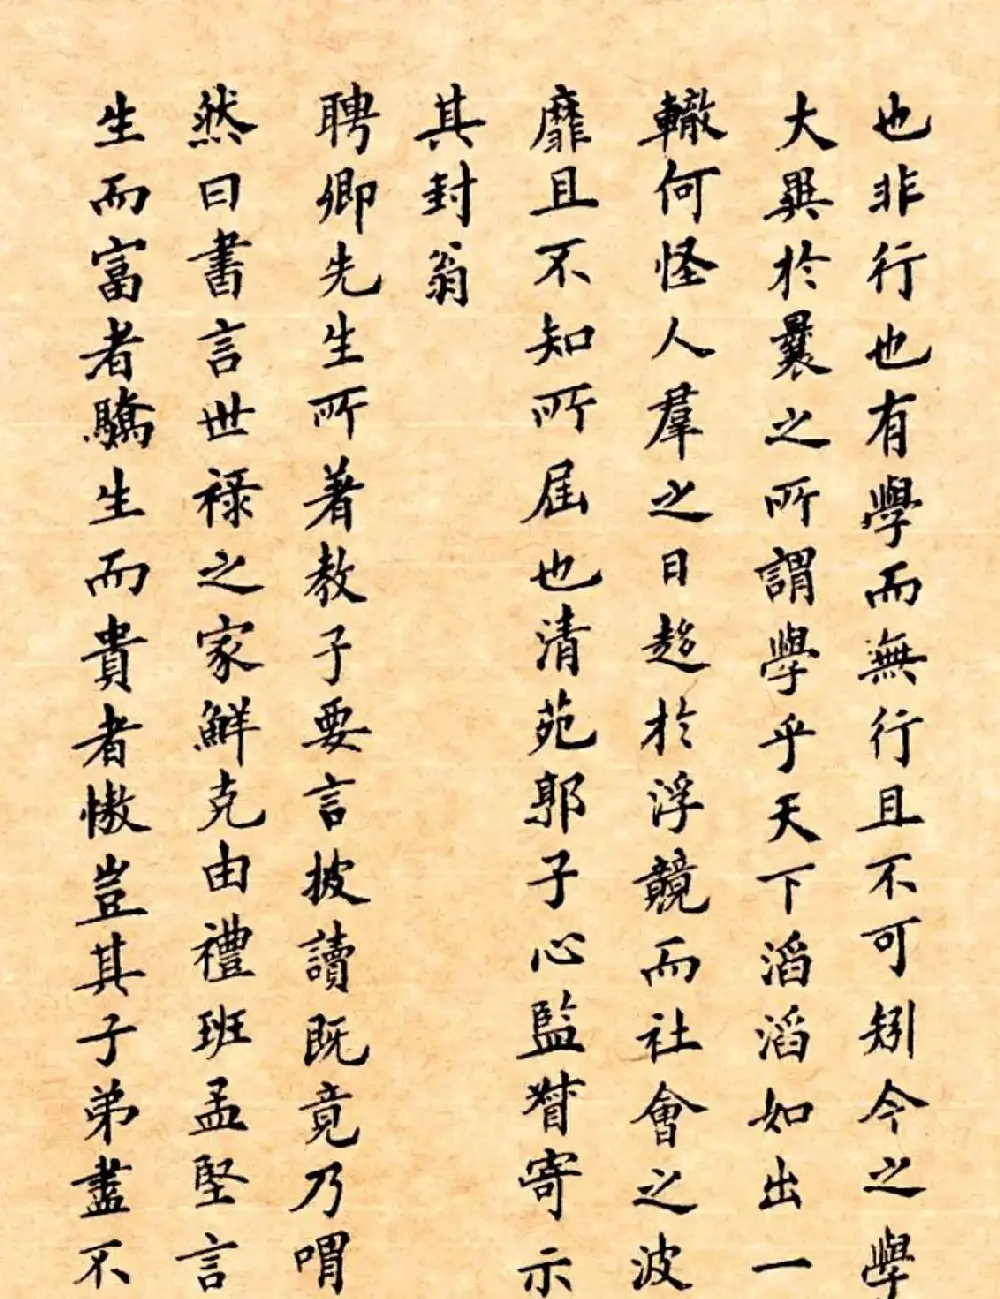 也非行也有學而無行且不可矧今之學
大異於曩之所謂學乎天下滔滔如出一
轍何怪人羣之日趍於浮競而社會之波
靡且不知所屆也清苑郭子心監督寄示
其封翁
聘卿先生所著教子要言披讀既竟乃喟
然曰書言世祿之家鮮克由禮班孟堅言
生而富者驕生而貴者慠豈其子弟盡不